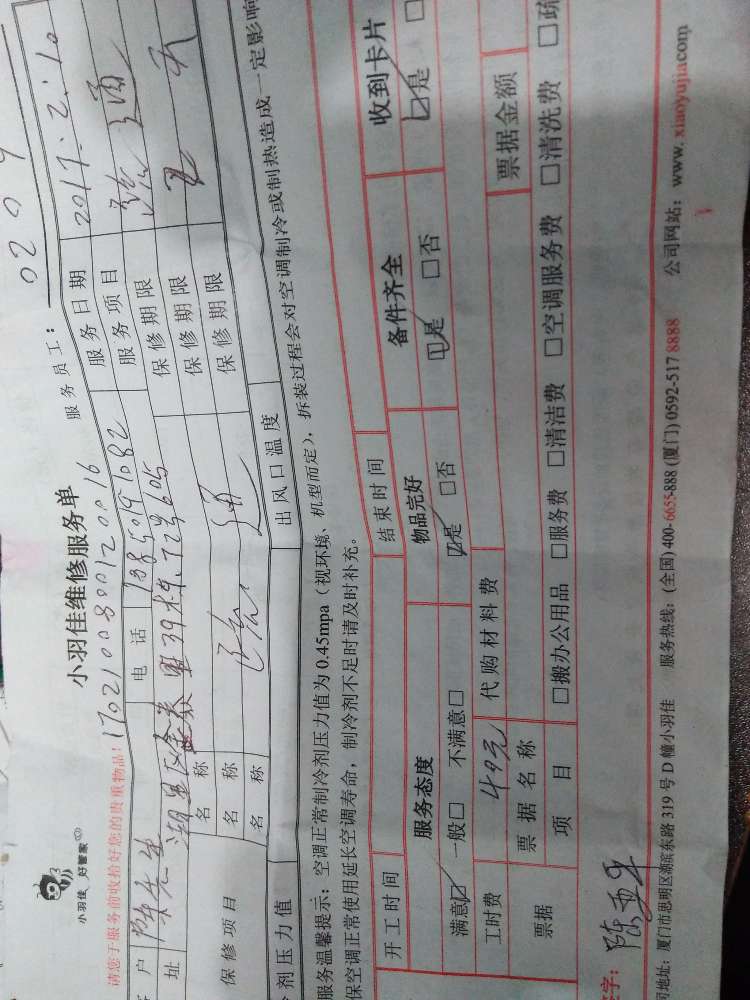 小羽佳 好管家
小羽佳维修服务单
服务员工：
0209
请您于服务前收拾好您的贵重物品!
170210080012 0016
户 陈先生 电话 服务日期 2017.2.10
址 服务项目 疏通
名称 保修期限
保修项目 名称 保修期限
名称 保修期限
剂压力值 出风口温度
服务温馨提示：空调正常制冷剂压力值为 0.45mpa（视环境、机型而定），拆装过程会对空调制冷或制热造成一定影响
保空调正常使用延长空调寿命，制冷剂不足时请及时补充。
开工时间 结束时间
服务态度 物品完好 备件齐全 收到卡片
满意☑ 一般□ 不满意□ ☑是 □否 ☑是 □否 ☑是 □
工时费 40元 代购材料费
票据 票据名称 票据金额
项目 □搬办公用品 □服务费 □清洁费 □空调服务费 □清洗费 □疏
字：
司地址：厦门市思明区湖滨东路 319 号 D 幢小羽佳 服务热线：(全国) 400-6655-888 (厦门) 0592-517 8888 公司网站：www. xiaoyujia.com